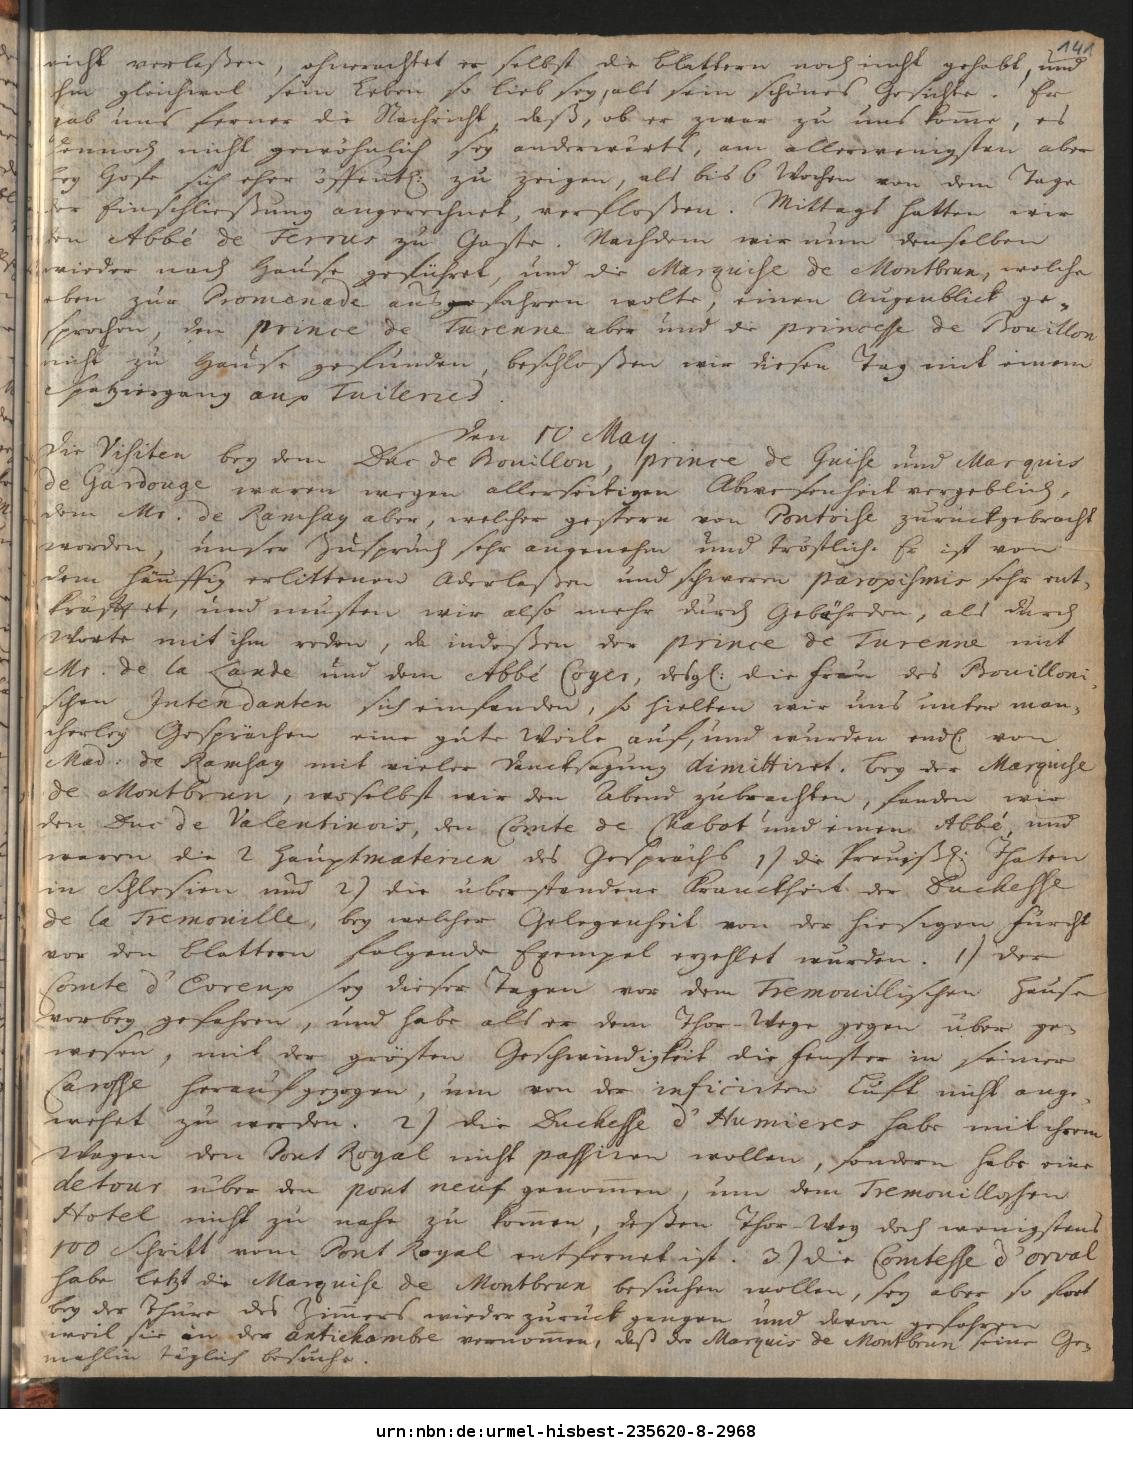 141
nicht verlaßen, ohnerachtet er selbst die Blattern noch nicht gehabt, und
ihm gleichwol sein Leben so lieb sey, als sein schönes Gesichte. Er
gab uns ferner die Nachricht, daß, ob er zwar zu uns kom̄e, es
dennoch nicht gewöhnlich sey anderwärts, am allerwenigsten aber
bey Hofe sich eher öffentl: zu zeigen, als bis 6 Wochen von dem Tage
der Einschließung angerechnet, verfloßen. Mittags hatten wir
den Abbé de Ferrus zu Gaste. Nachdem wir nun denselben
wieder nach Hause geführet, und die Marquise de Montbrun, welche
eben zur Promenade ausfahren wolte, einen Augenblick ge-
sprochen, den prince de Turenne aber und die princesse de Bouillon
nicht zu Hause gefunden, beschloßen wir diesen Tag mit einem
Spatziergang aux Tuileries.
Den 10 May.
Die Visiten bey dem Duc de Bouillon, prince de Guise und Marquis
de Gardouge waren wegen allerseitigen Abwesenheit vergeblich,
dem Mr. de Ramsay aber, welcher gestern von Pontoise zurückgebracht
worden, unser Zuspruch sehr angenehm und tröstlich. Er ist von
dem häuffig erlittenen Aderlaßen und schweren paroxismis sehr ent-
kräftet, und musten wir also mehr durch Gebährden, als durch
Worte mit ihm reden, da indeßen der prince de Turenne mit
Mr. de la Lande und dem Abbé Coyer, desgl: die Frau des Bouilloni-
schen Intendanten sich einfanden, so hielten wir uns unter man-
cherley Gesprächen eine gute Weile auf, und wurden endl von
Mad: de Ramsay mit vieler Dancksagung dimittiret. Bey der Marquise
de Montbrun, woselbst wir den Abend zubrachten, fanden wir
den Duc de Valentinois, den Comte de Chabot und einen Abbé, und
waren die 2 Hauptmaterien des Gesprächs 1) die Preußl: Thaten
in Schlesien und 2) die überstandene Kranckheit der Duchesse
de la Tremouille, bey welcher Gelegenheit von der hiesigen Furcht
vor den Blattern folgende Exempel erzehlet wurden. 1) der
Comte d'Evreux sey dieser Tagen vor dem Tremouillischen Hause
vorbey gefahren, und habe als er dem Thor-Wege gegen über ge-
wesen, mit der grösten Geschwindigkeit die Fenster in seiner
Carosse heraufgezogen, um von der inficirten Luft nicht ange-
wehet zu werden. 2) die Duchesse d'Humieres habe mit ihrem
Wagen den Pont Royal nicht passiren wollen, sondern habe eine
detour über den pont neuf genom̄en, um dem Tremouillschen
Hotel nicht zu nahe zu kom̄en, deßen Thor-Weg doch wenigstens
100 Schritt vom Pont Royal entfernet ist. 3) die Comtesse d'Orval
habe letzt die Marquise de Montbrun besuchen wollen, sey aber so fort
bey der Thüre des Zim̄ers wieder zurück gangen und davon gefahren
weil sie in der antichambre vernom̄en, daß der Marquis de Montbrun seine Ge-
mahlin täglich besuche.
urn:nbn:de:urmel-hisbest-235620-8-2968